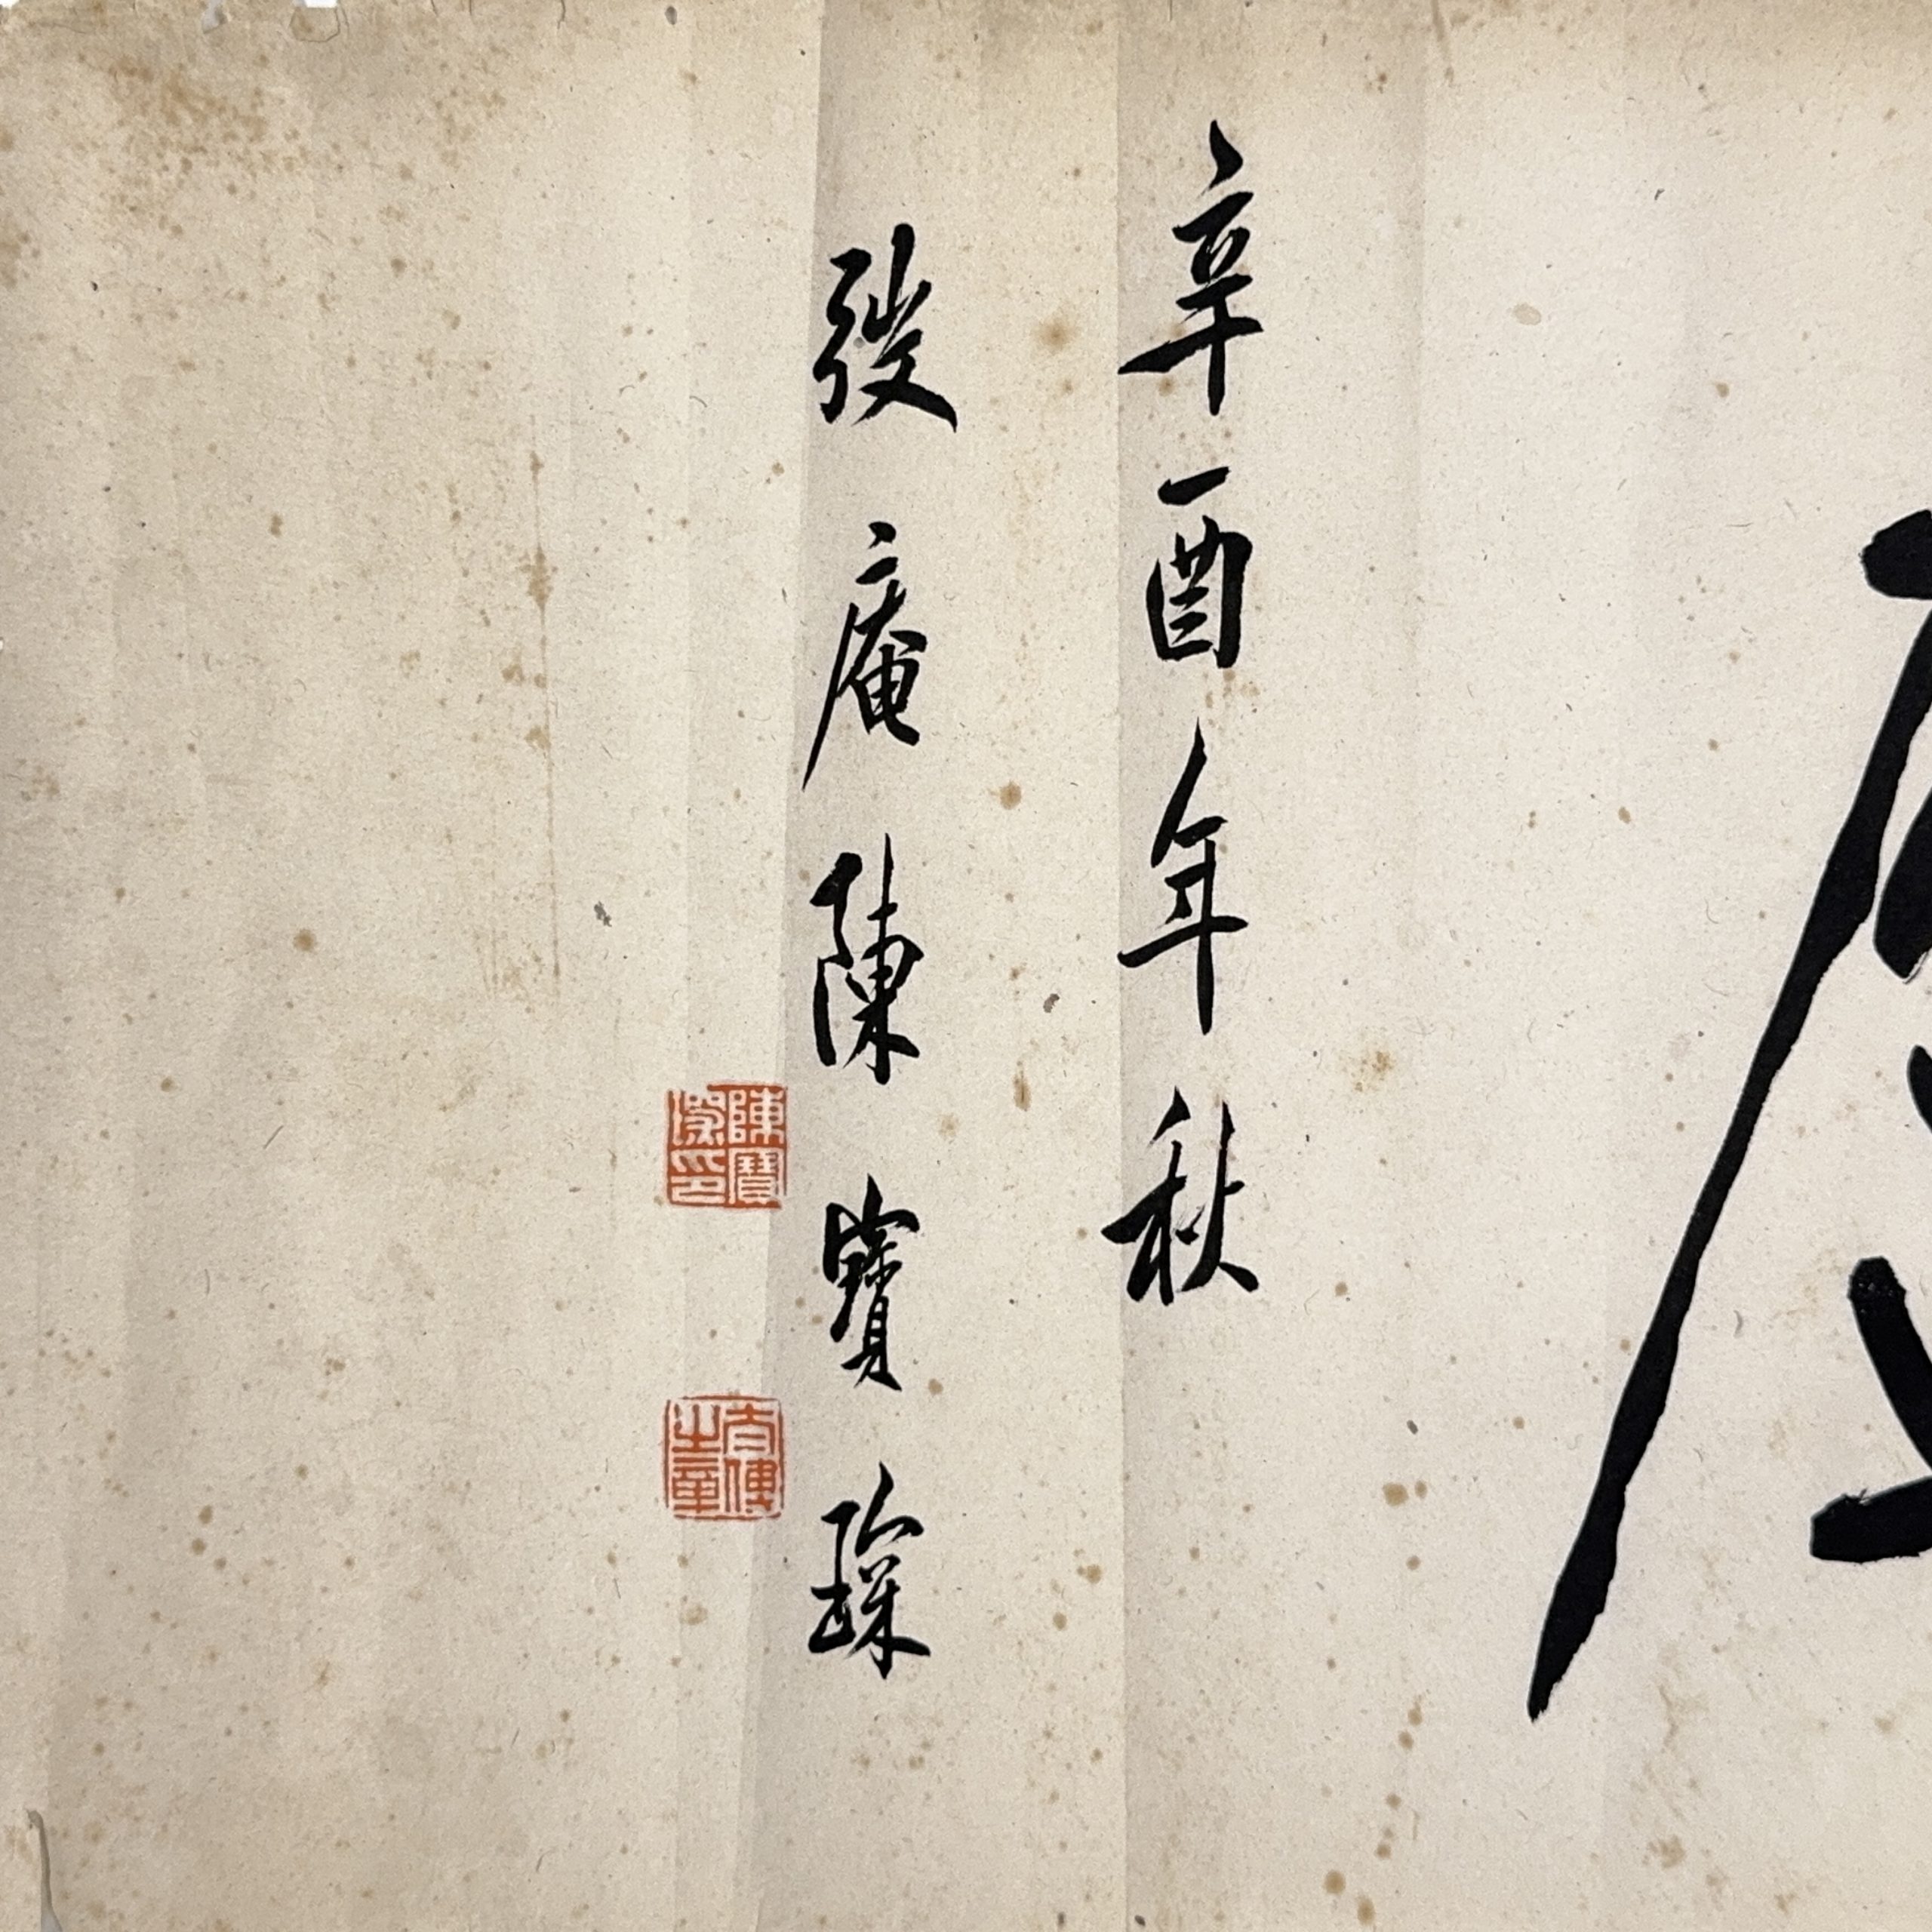 辛酉年秋
弢庵陳寶琛
陳寶琛印
太傅之章